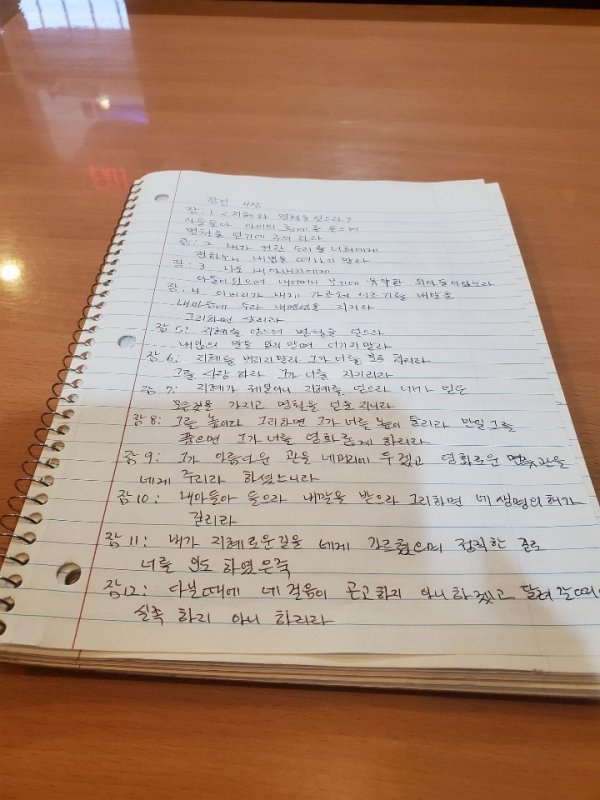 잠언 4장
잠: 1 <지혜와 명철을 얻으라>
아들들아 아비의 훈계를 들으며
명철을 얻기에 주의 하라
잠: 2 내가 선한 도리를 너희에게
전하노니 내법을 떠나지 말라
잠: 3 나도 내 아버지에게
아들이었으며 내어머니 보기에 유약한 외아들이었노라
잠: 4 아버지가 내게 가르쳐 이르기를 내말을
네마음에 두라 내명령을 지키라
그리하면 살리라
잠 5: 지혜를 얻으며 명철을 얻으라
내입의 말을 잊지 말며 어기지 말라
잠 6: 지혜를 버리지말라 그가 너를 보호 하리라
그를 사랑 하라 그가 너를 지키리라
잠 7: 지혜가 제일이니 지혜를 얻으라 네가 얻은
모든것을 가지고 명철을 얻을 지니라
잠 8: 그를 높이라 그리하면 그가 너를 높이 들리라 만일 그를
품으면 그가 너를 영화롭게 하리라
잠 9: 그가 아름다운 관을 네머리에 두겠고 영화로운 면류관을
네게 주리라 하셨느니라
잠 10: 내아들아 들으라 내말을 받으라 그리하면 네 생명의 해가
길리라
잠 11: 내가 지혜로운길을 네게 가르쳤으며 정직한 길로
너를 인도 하였은즉
잠12: 다닐때에 네 걸음이 곤고하지 아니하겠고 달려갈때에
실족 하지 아니 하리라
EXIT